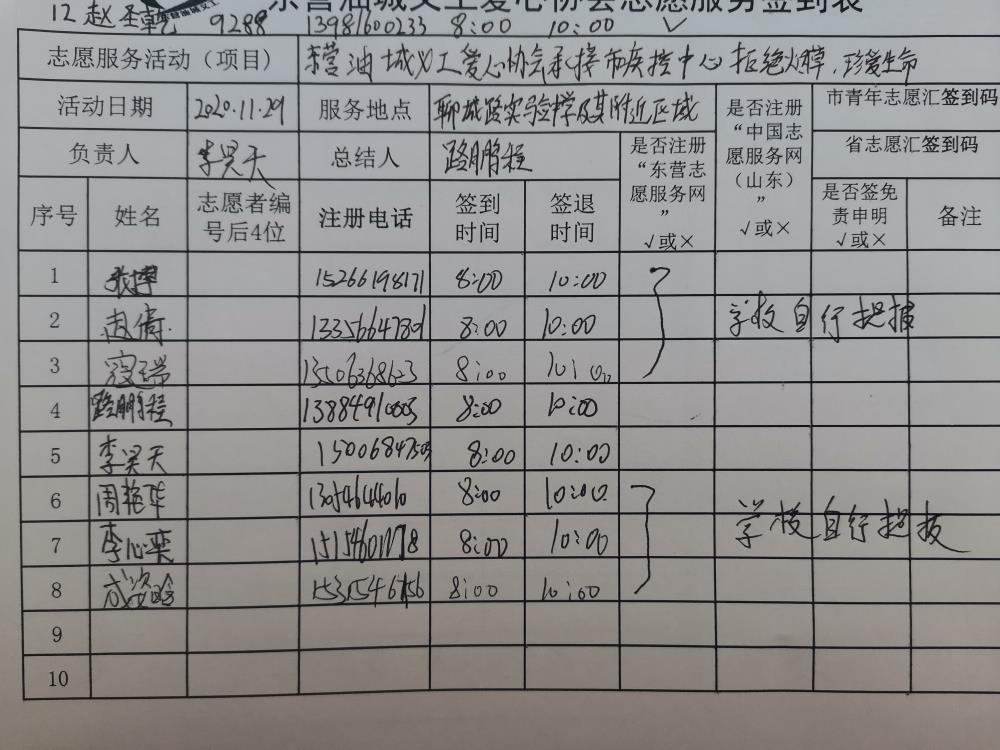 东营油城义工爱心协会志愿服务签到表
12 赵圣卓 9288 13981600233 8:00 10:00 ✓
志愿服务活动（项目） 东营油城义工爱心协会承接市疾控中心拒绝烟草，珍爱生命
活动日期 2020.11.29 服务地点 聊城路实验中学及其附近区域 是否注册“中国志愿服务网（山东）” √或× 市青年志愿汇签到码
负责人 李昊天 总结人 路鹏程 是否注册“东营志愿服务网” √或× 省志愿汇签到码
序号 姓名 志愿者编号后4位 注册电话 签到时间 签退时间 是否签免责申明 √或× 备注
1 张博 15266198171 8:00 10:00
2 赵倩 8:00 10:00 学校自行提报
3 寇瑞 13506368623 8:00 10:00
4 路鹏程 13884910003 8:00 10:00
5 李昊天 8:00 10:00
6 周艳华 8:00 10:00
7 李心奕 8:00 10:00 学校自行提报
8 成姿晗 8:00 10:00
9
10